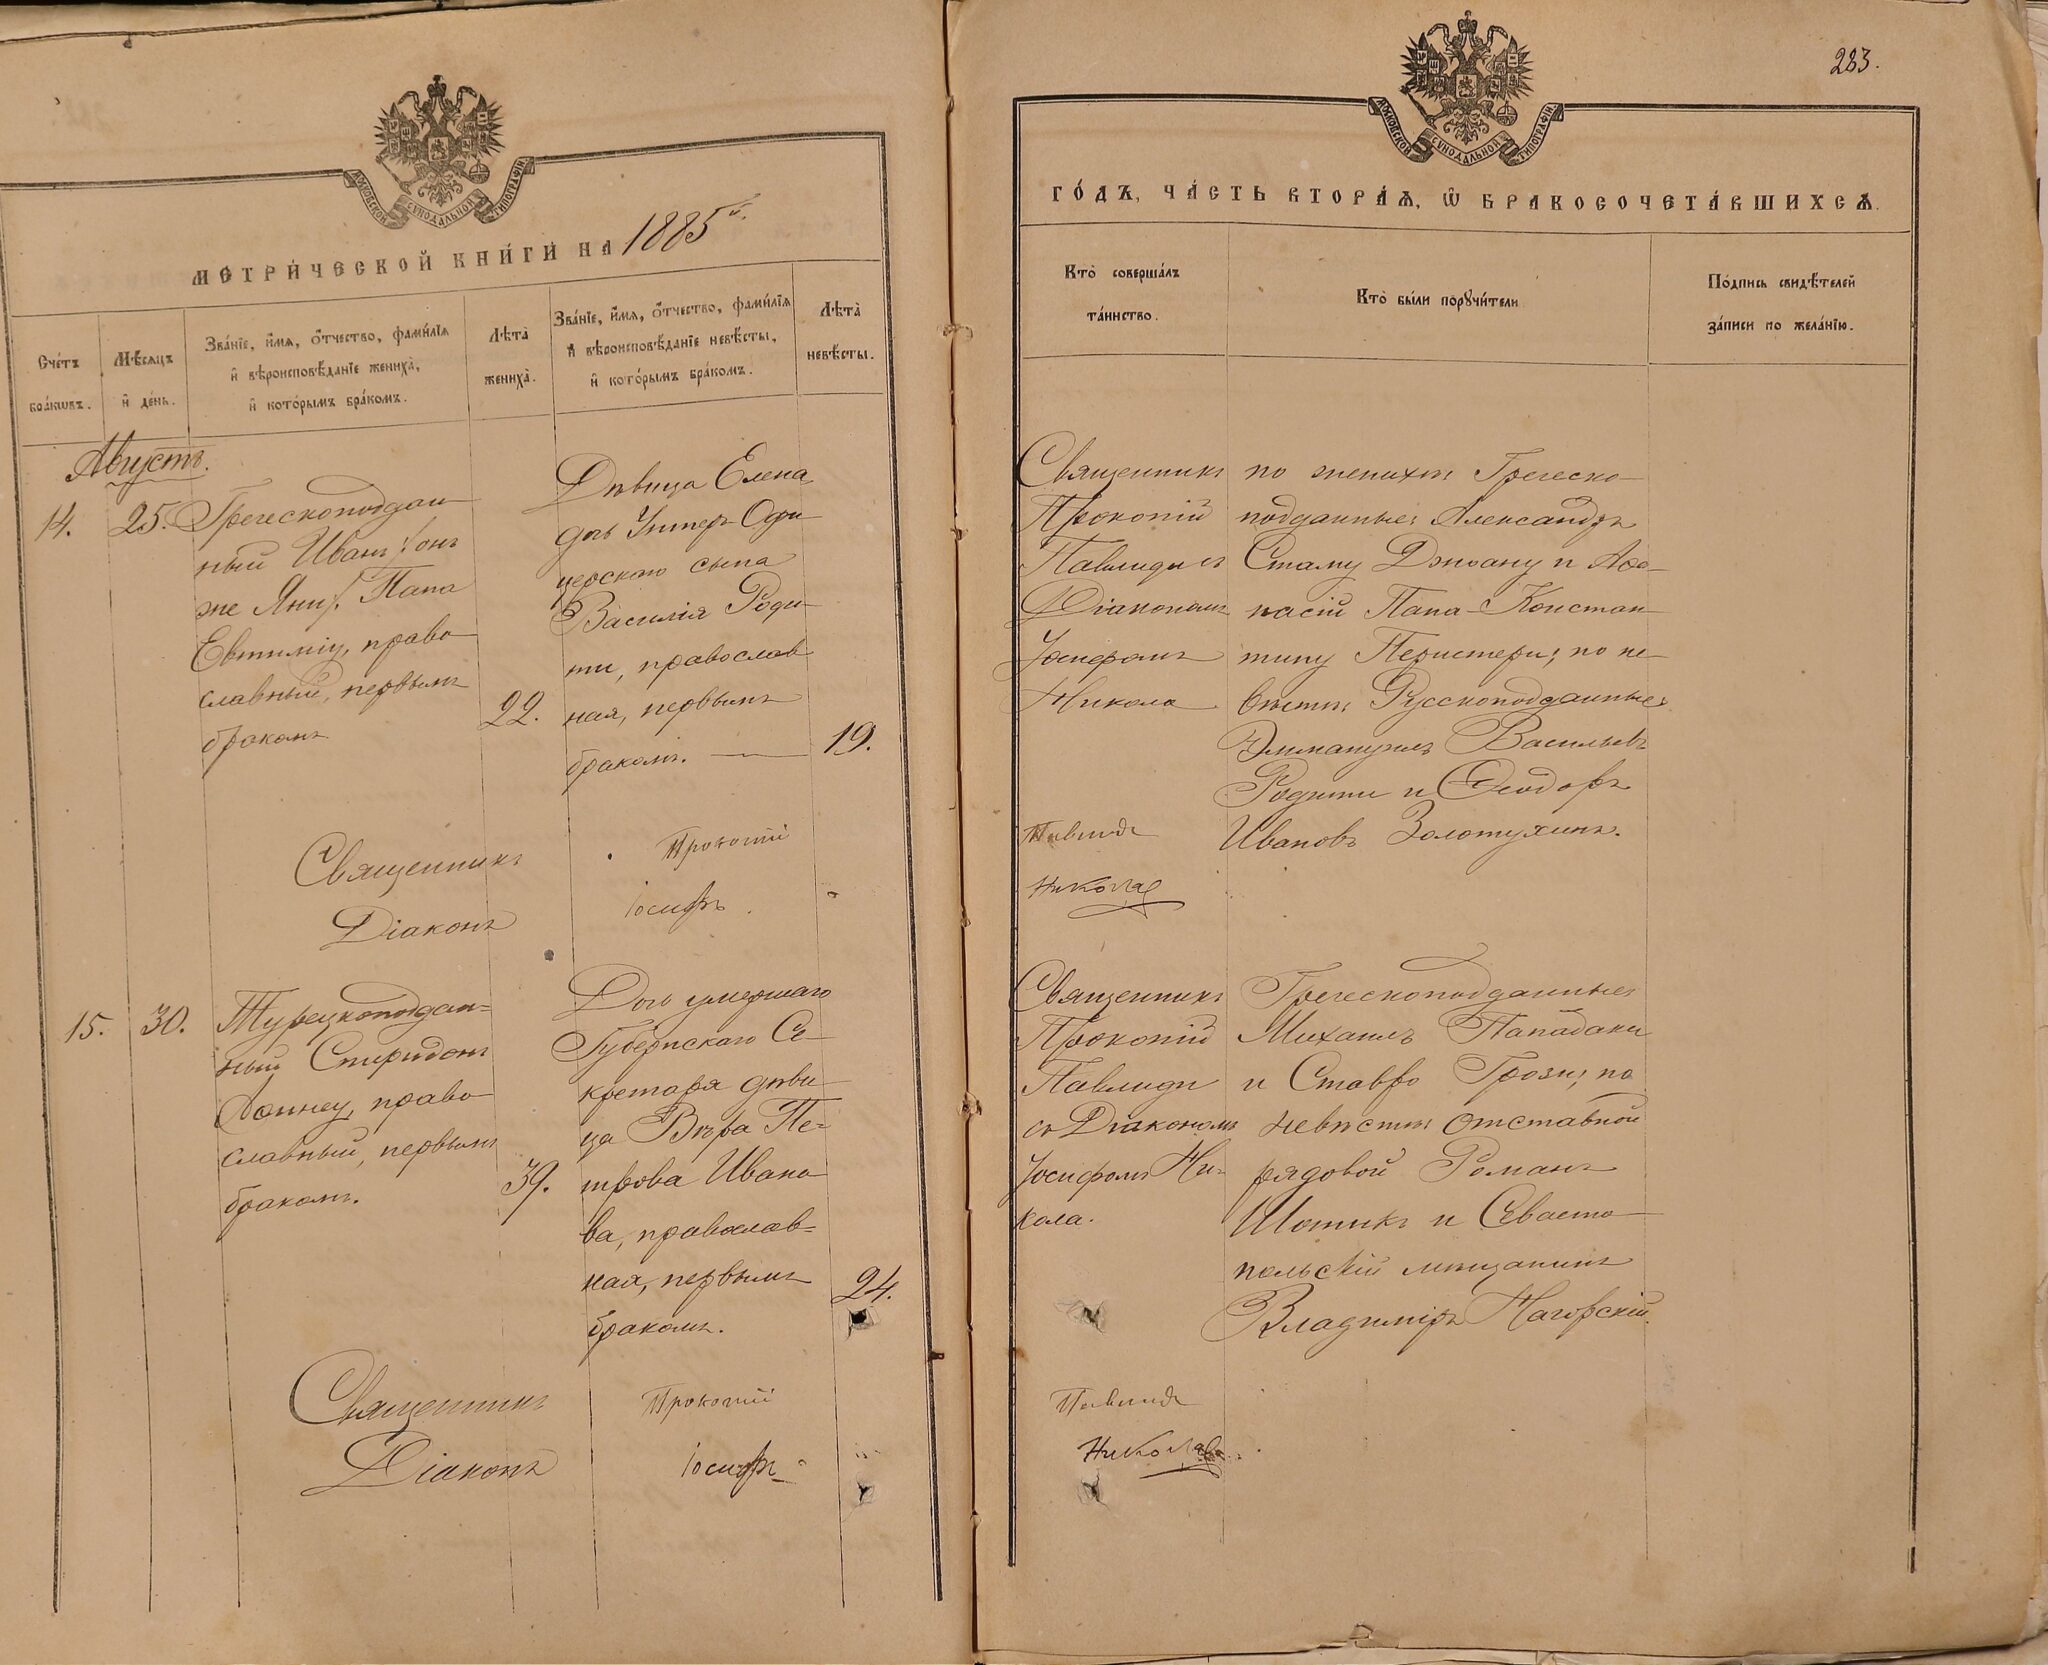 МОСКОВСКОЙ СѴНОДАЛЬНОЙ ТИПОГРАФІИ
МЕТРИ́ЧЕСКОЙ КНИ́ГИ НА 1885 й.
Сче́тъ бра́кωвъ.
Мѣ́сяцъ и҆ де́нь.
Зва́ніе, и҆́мѧ, ѻ҆́тчество, фами́лїѧ
и҆ вѣроисповѣ́данїе жениха̀,
и҆ кото́рымъ бра́комъ.
Лѣ́та̀
жениха̀.
Зва́ніе, и҆́мѧ, ѻ҆́тчество, фами́лїѧ
и҆ вѣроисповѣ́данїе невѣ́сты,
и҆ кото́рымъ бра́комъ.
Лѣ́та̀
невѣ́сты.
Августъ.
14.
25.
Греческоподдан
ный Иванъ /онъ
же Яни/. Папа
Евтиміу, право
славный, первымъ
бракомъ
22.
Дѣвица Елена
дочь Унтеръ-Офи
церскаго сына
Василія Роди
ти, православ
ная, первымъ
бракомъ.
19.
Священникъ Прокопій
Діаконъ Іосифъ
15.
30.
Турецкоподдан=
ный Спиридонъ
право
славный, первымъ
бракомъ.
39.
Дочь умершаго
Губернскаго Се
кретаря дѣви
ца Вѣра Пе=
трова Ивано
ва, православ=
ная, первымъ
бракомъ.
24.
Священникъ Прокопій
Діаконъ Іосифъ
283.
МОСКОВСКОЙ СѴНОДАЛЬНОЙ ТИПОГРАФІИ
ГО́ДЪ, ЧА́СТЬ ВТОРА́Ѧ, Ѿ БРАКОСОЧЕТА́ВШИХСѦ.
Кто̀ соверша́лъ
та́инство.
Кто̀ бы́ли порꙋчи́тели
По́дпись свидѣ́телей
за́писи по жела́нію.
Священникъ
Прокопій
Павлиди съ
Діакономъ
Іосифомъ
Никола
по женихѣ Греческо
подданные: Александръ
Стаму Джоану и Аѳа
насій Папа-Констан
тину Перистери; по не
вѣстѣ Русскоподданные:
Эммануилъ Васильевъ
Родити и Ѳеодоръ
Ивановъ Золотухинъ.
Павлиди
Никола
Священникъ
Прокопій
Павлиди
съ Діакономъ
Іосифомъ Ни
кола.
Греческоподданные:
Михаилъ Пападаки
и Ставро Грози; по
невѣстѣ отставной
рядовой Романъ
Шотикъ и Севасто
польскій мѣщанинъ
Владиміръ Нагорскій.
Павлиди
Никола